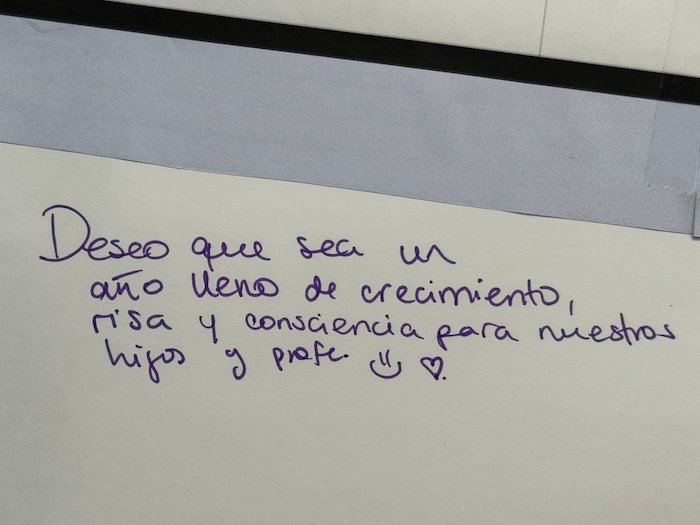 Deseo que sea un
año lleno de crecimiento,
risa y consciencia para nuestros
hijos y profe. :) ♡.